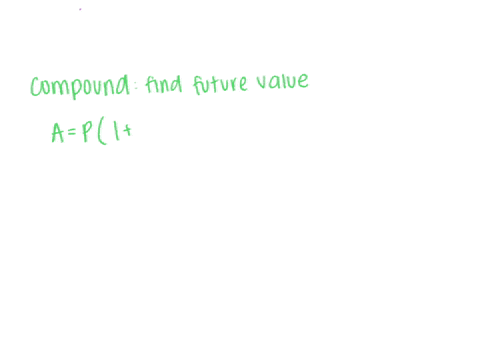 compound: find future value
A = P ( 1 +